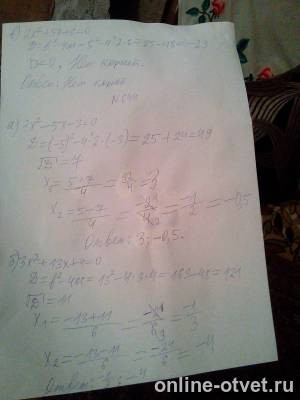 в) 2x²+5x+6=0
D=b²-4ac=5²-4·2·6=25-48=-23
D<0, Нет корней.
Ответ: Нет корней
№544
а) 2x²-5x-3=0
D=(-5)²-4·2·(-3)=25+24=49
√D=7
x₁=5+7/4=12/4=3
x₂=5-7/4=-2/4=-1/2=-0,5
Ответ: 3; -0,5.
б) 3x²+13x+4=0
D=b²-4ac=13²-4·3·4=169-48=121
√D=11
x₁=-13+11/6=-2/6=-1/3
x₂=-13-11/6=-24/6=-4
Ответ: -4
online-otvet.ru